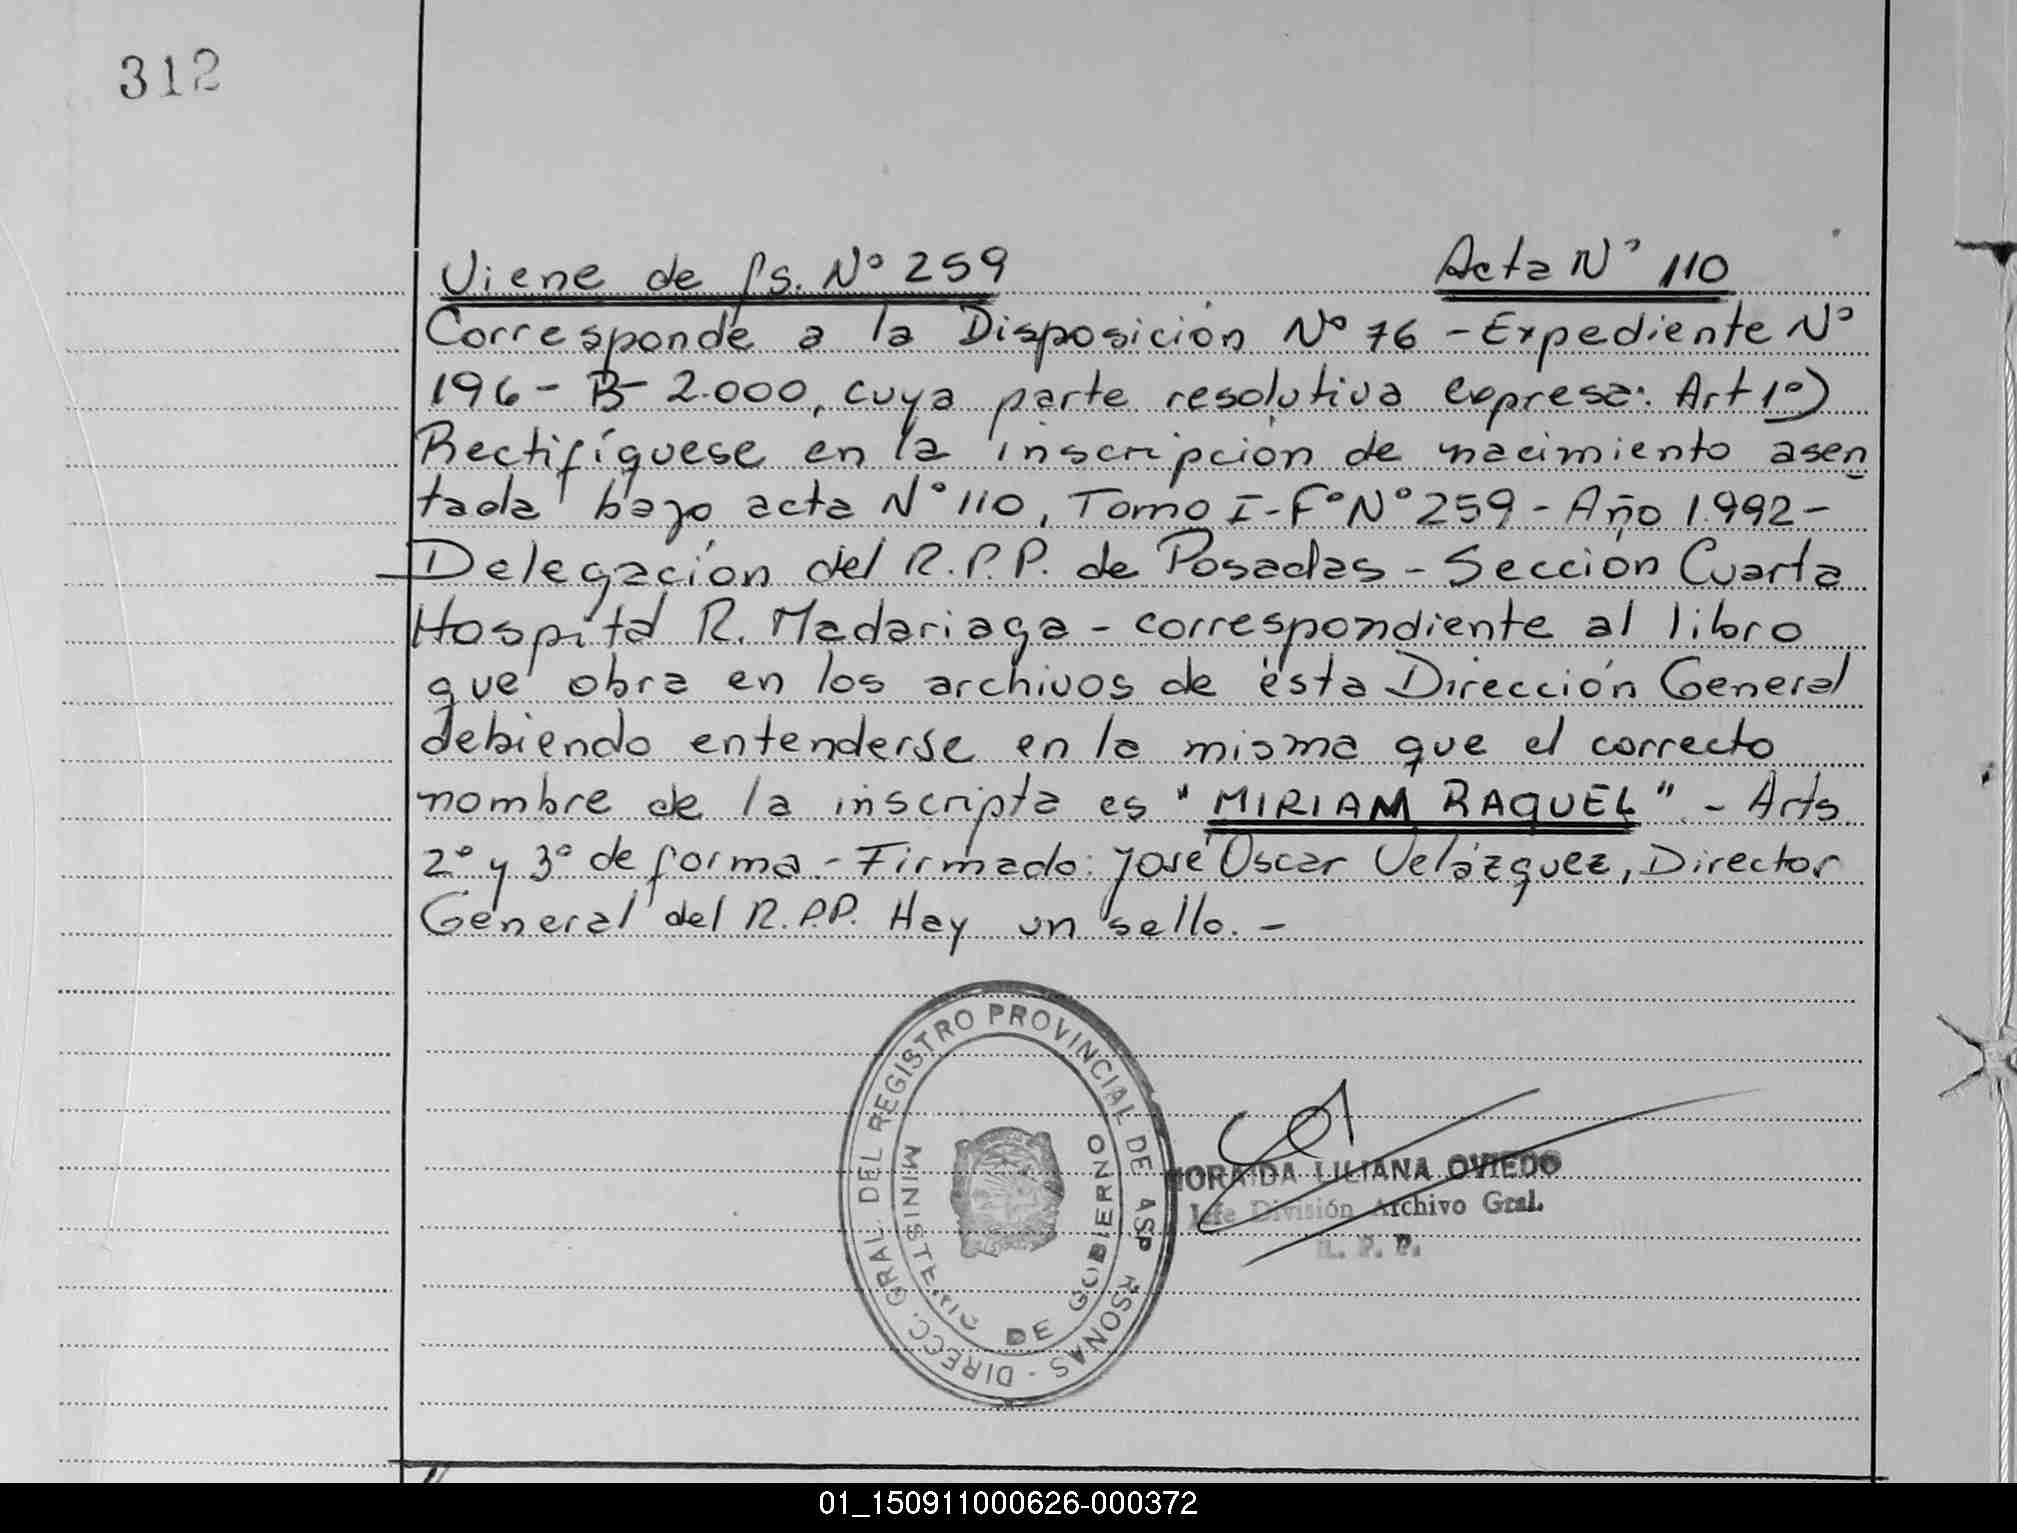 312
Viene de fs. Nº 259 Acta Nº 110
Corresponde a la Disposición Nº 76 - Expediente Nº
196 - B - 2.000, cuya parte resolutiva expresa: Art 1º)
Rectifíquese en la inscripción de nacimiento asen
tada bajo acta Nº 110, Tomo I - Fº Nº 259 - Año 1.992 -
Delegación del R.P.P. de Posadas - Sección Cuarta
Hospital R. Madariaga - correspondiente al libro
que obra en los archivos de ésta Dirección General
debiendo entenderse en la misma que el correcto
nombre de la inscripta es "MIRIAM RAQUEL" - Arts
2º y 3º de forma - Firmado: José Oscar Velázquez, Director
General del R.P.P. Hay un sello. -
DIRECC. GRAL DEL REGISTRO PROVINCIAL DE
MINISTERIO DE GOBIERNO
LILIANA OVIEDO
Jefe División Archivo Gral.
R. P. P.
01_150911000626-000372